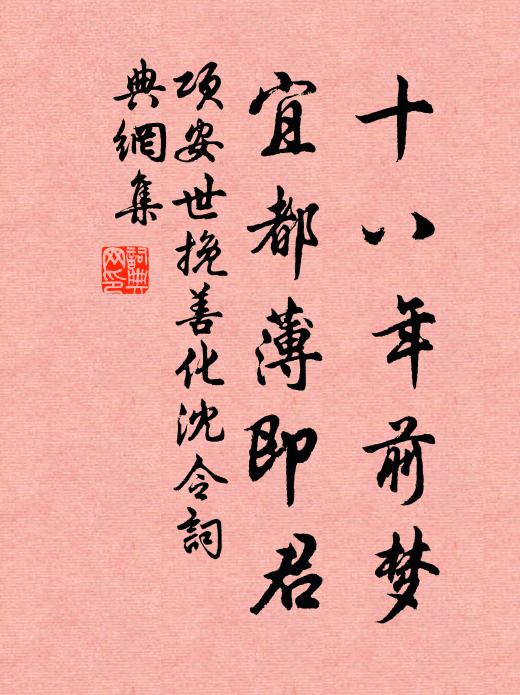 十八年前梦
宜都薄即君
项安世挽善化沈令詞
典網集
詞典網印